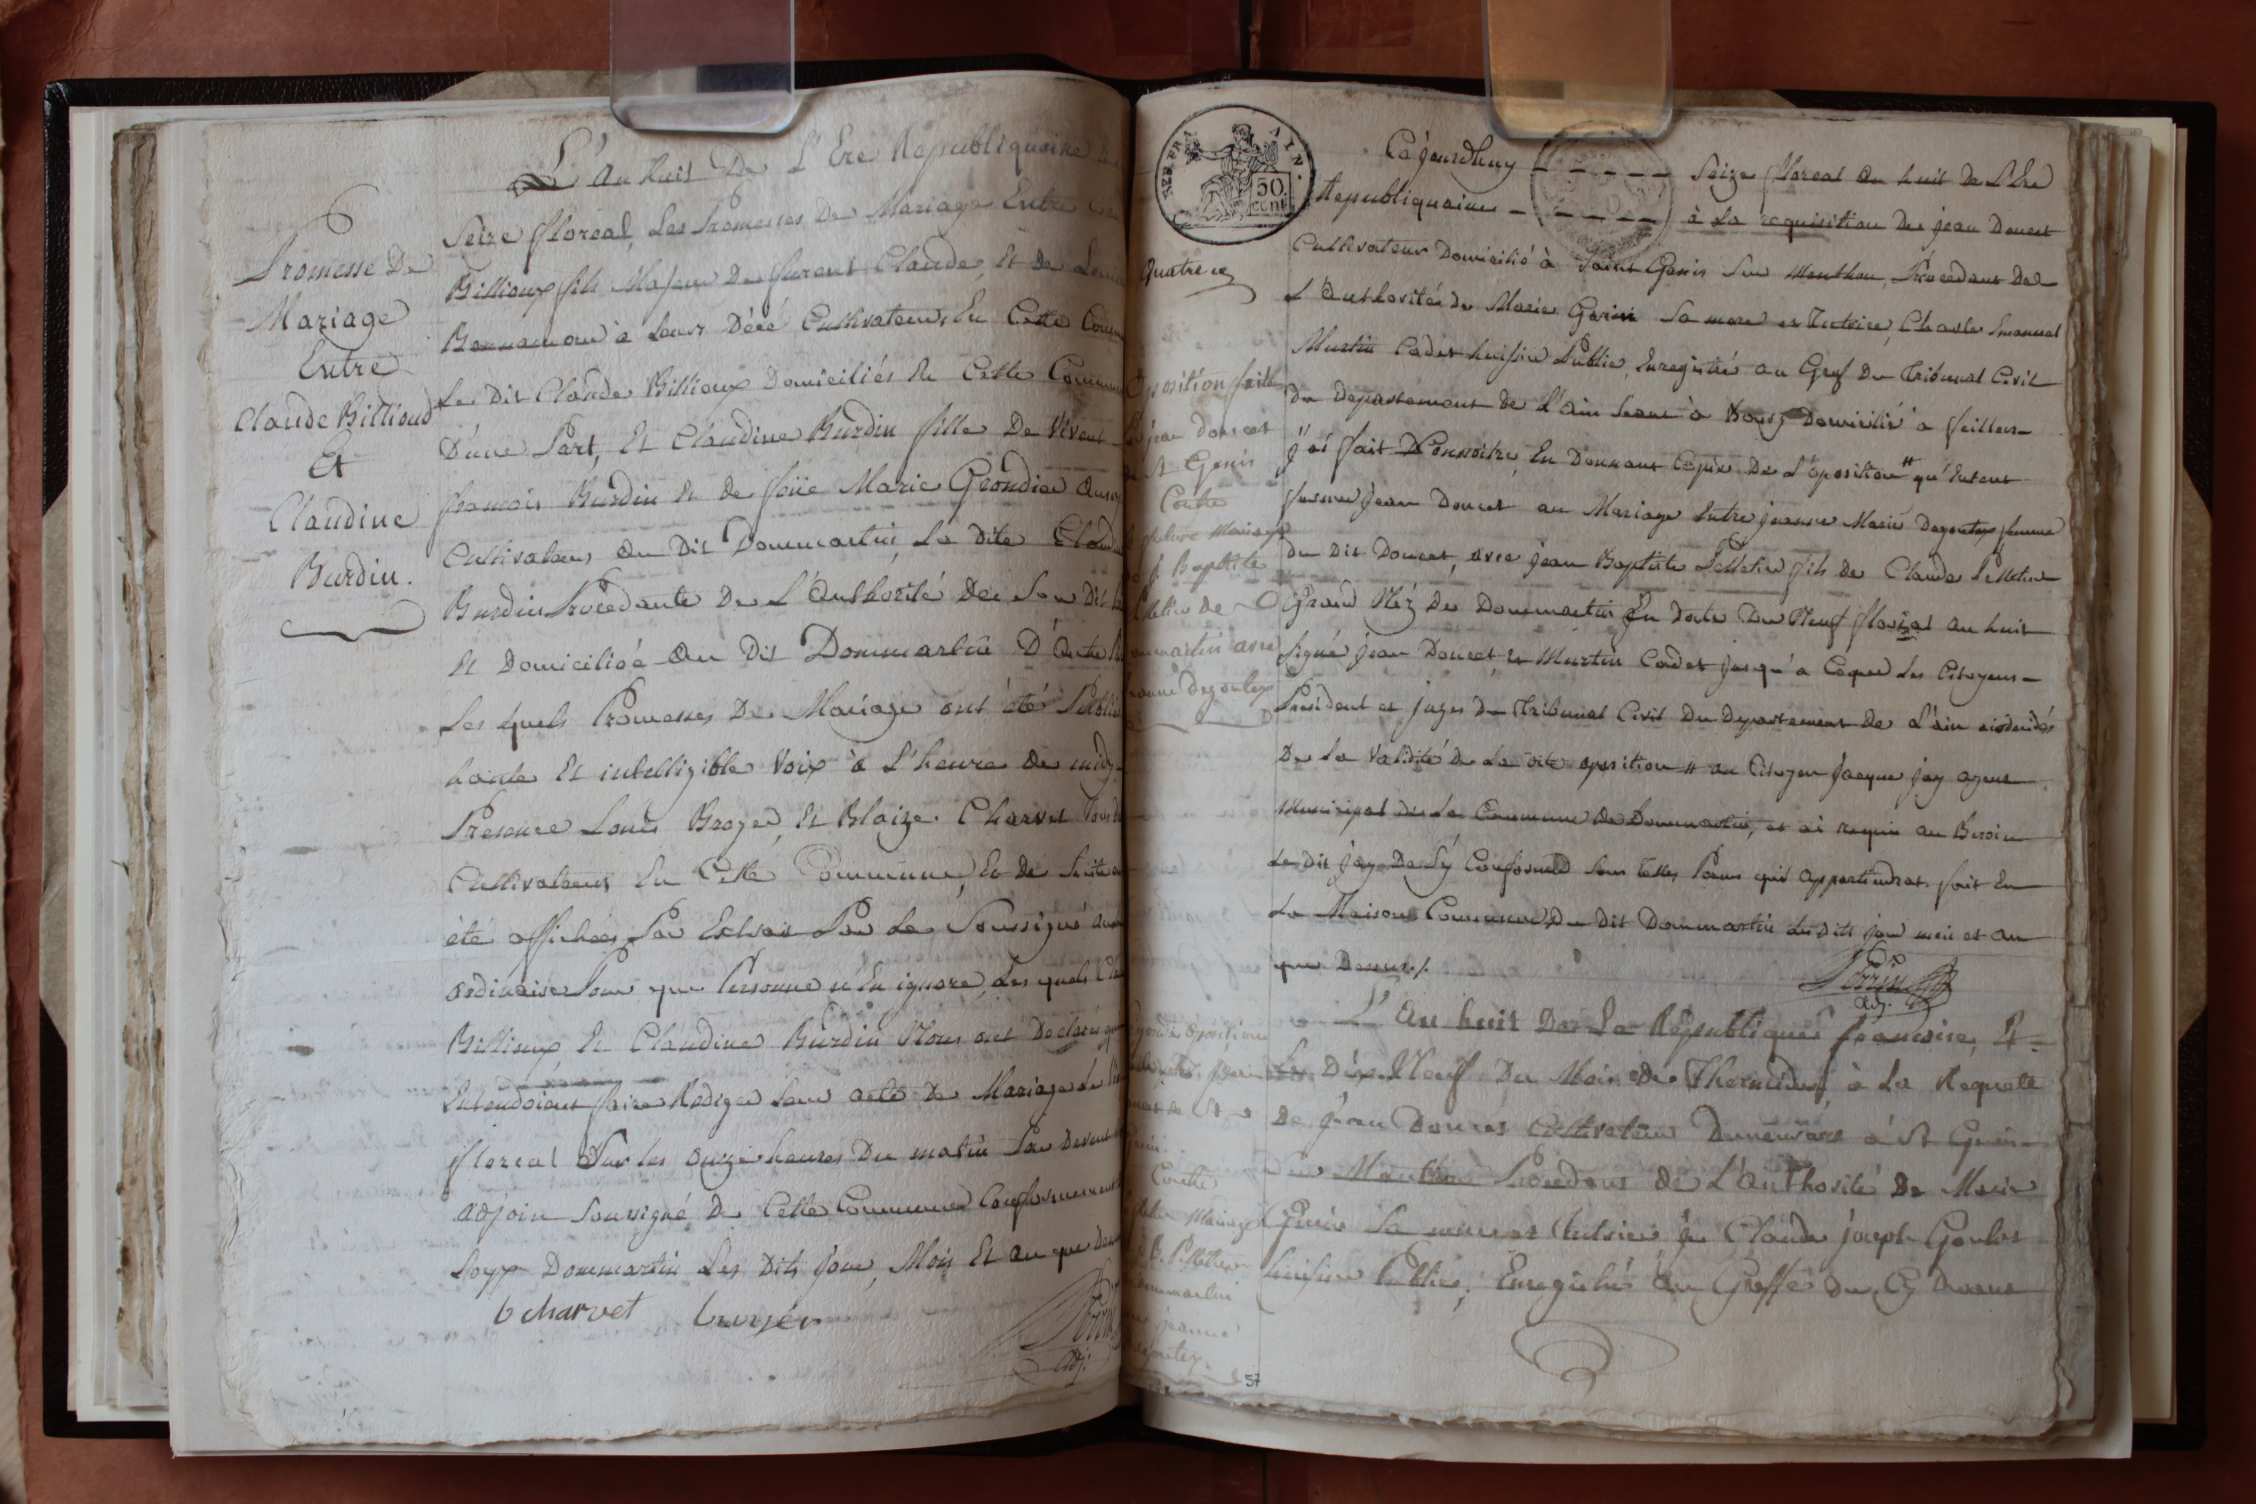 Promesse De
Mariage
Entre
Claude Billioud
Et
Claudine
Burdin.
L'an huit De L'Ere Republiquaine
Seize floreal, Les Promesses De Mariage Entre
Billioux fils Majeur De furent Claude, Et de
à Leurs Déce Cultivateur, En Cette
Le Dit Claude Billioux Domiciliés En Cette Commune
D'une Part, Et Claudine Burdin fille De Vivent
francois Burdin Et de föüe Marie Grondier
Cultivateur, au Dit Dommartin, La Dite
Burdin Procedante De L'authorité De Son Dit
Et Domiciliée au Dit Dommartin D'autre
Les quels Promesses De Mariage ont été
haute Et intelligible Voix à L'heure De midy
Presence Louis Broyer, Et Blaize Charvet
Cultivateurs En Cette Commune, Et De Suite
été affichées Par Extrait Par Le Soussigné
ordinaire Pour que Personne n'En ignore, Les quels
Billioux Et Claudine Burdin Nous ont Declarés
Entendoient faire Rediger Leur acte De Mariage Le
floreal Sur les onze heures Du matin Par Devant
adjoin Soussigné De Cette Commune Conformement
Loyx Dommartin Les Dits Jour, Mois Et an que
b charvet
adj.
AIN.
50
cent
Quatre
Cejourdhuy - - - - - Seize floreal an huit de L'Ere
Republiquaine - - - - - à La requisition De jean Doucet
Cultivateur Domicilié à Saint Genis Sur Menthon, Procedant De
L'authorité De Marie Genin Sa mere et Tutrice, Charle Emanuel
Martin Cadet huissier Public, Enregistré au Gref Du Tribunal Civil
Du Departement de L'ain Seant à Bourg Domicilié à feillens
J'ai fait Connoitre En Donnant Copie De L'oposition # qu'Entent
former jean Doucet au Mariage Entre jeanne Marie Degoutex femme
du Dit Doucet, avec jean Baptiste Pelletier fils De Claude Pelletier
Grand Néz De Dommartin En Date Du Neuf floreal an huit
Signé jean Doucet et Martin Cadet jusqu'a Ceque Les Citoyens
President et juges Du Tribunal Civil Du Departement De L'ain
De La Validité De La Dite oposition # au Citoyen Jacque jay agent
Municipal De La Commune De Dommartin, et ai requis au Besoin
Le Dit jay De S'y Conformer Sous telles Peines qu'il appartiendrat fait En
La Maison Commune Du Dit Dommartin Les Dits jour mois et an
que Dessus./.
Perrin
adj.
oposition faite
Par jean Doucet
De St Genis
Contre
Le future Mariage
De J. Baptiste
Pelletier de
Dommartin avec
jeanne Degoutex
L'an huit De La Republique francoise, Et
Le Dix Neuf Du Mois De Thermidor, à La Requete
De Jean Doucet Cultivateur Demeurant à St Genis
Sur Menthon Procedant De L'authorité De Marie
Genin Sa mere et Tutrice Je Claude joseph
huissier Public, Enregistré au Greffe Du Cy Devant
oposition
Contre
Mariage
B. Pelletier
Dommartin
jeanne
57